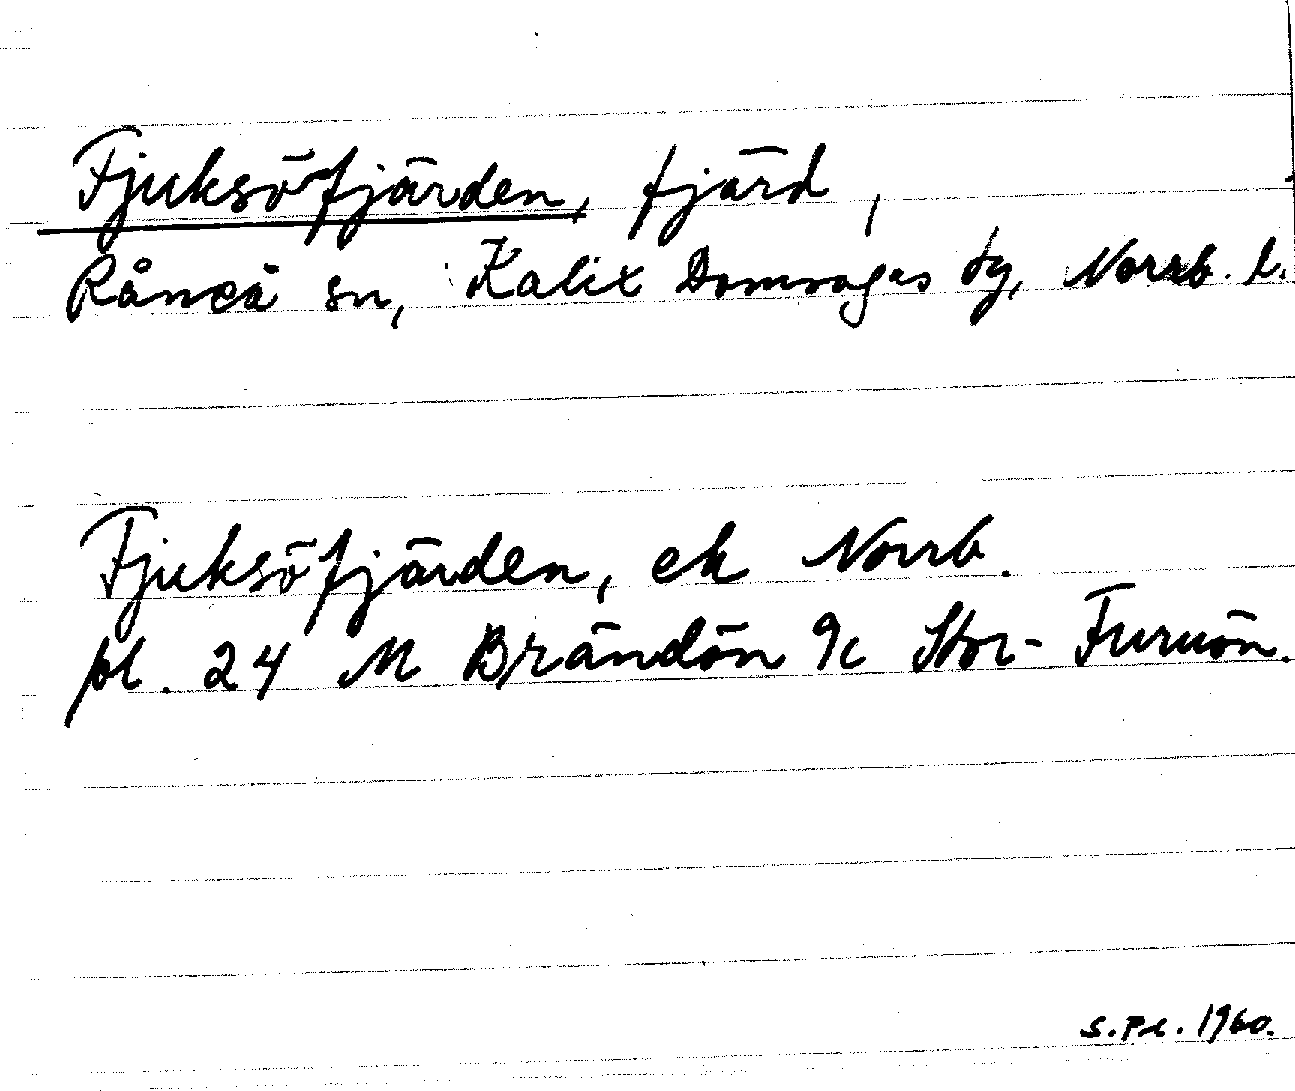 Fjuksöfjärden, fjärd,
Råneå sn, Kalix Domsagas tg, Norrb. l.
Fjuksöfjärden, ek Norrb.
pl. 24 M Brändön 9c Stor-Furuön.
S.Pl. 1960.